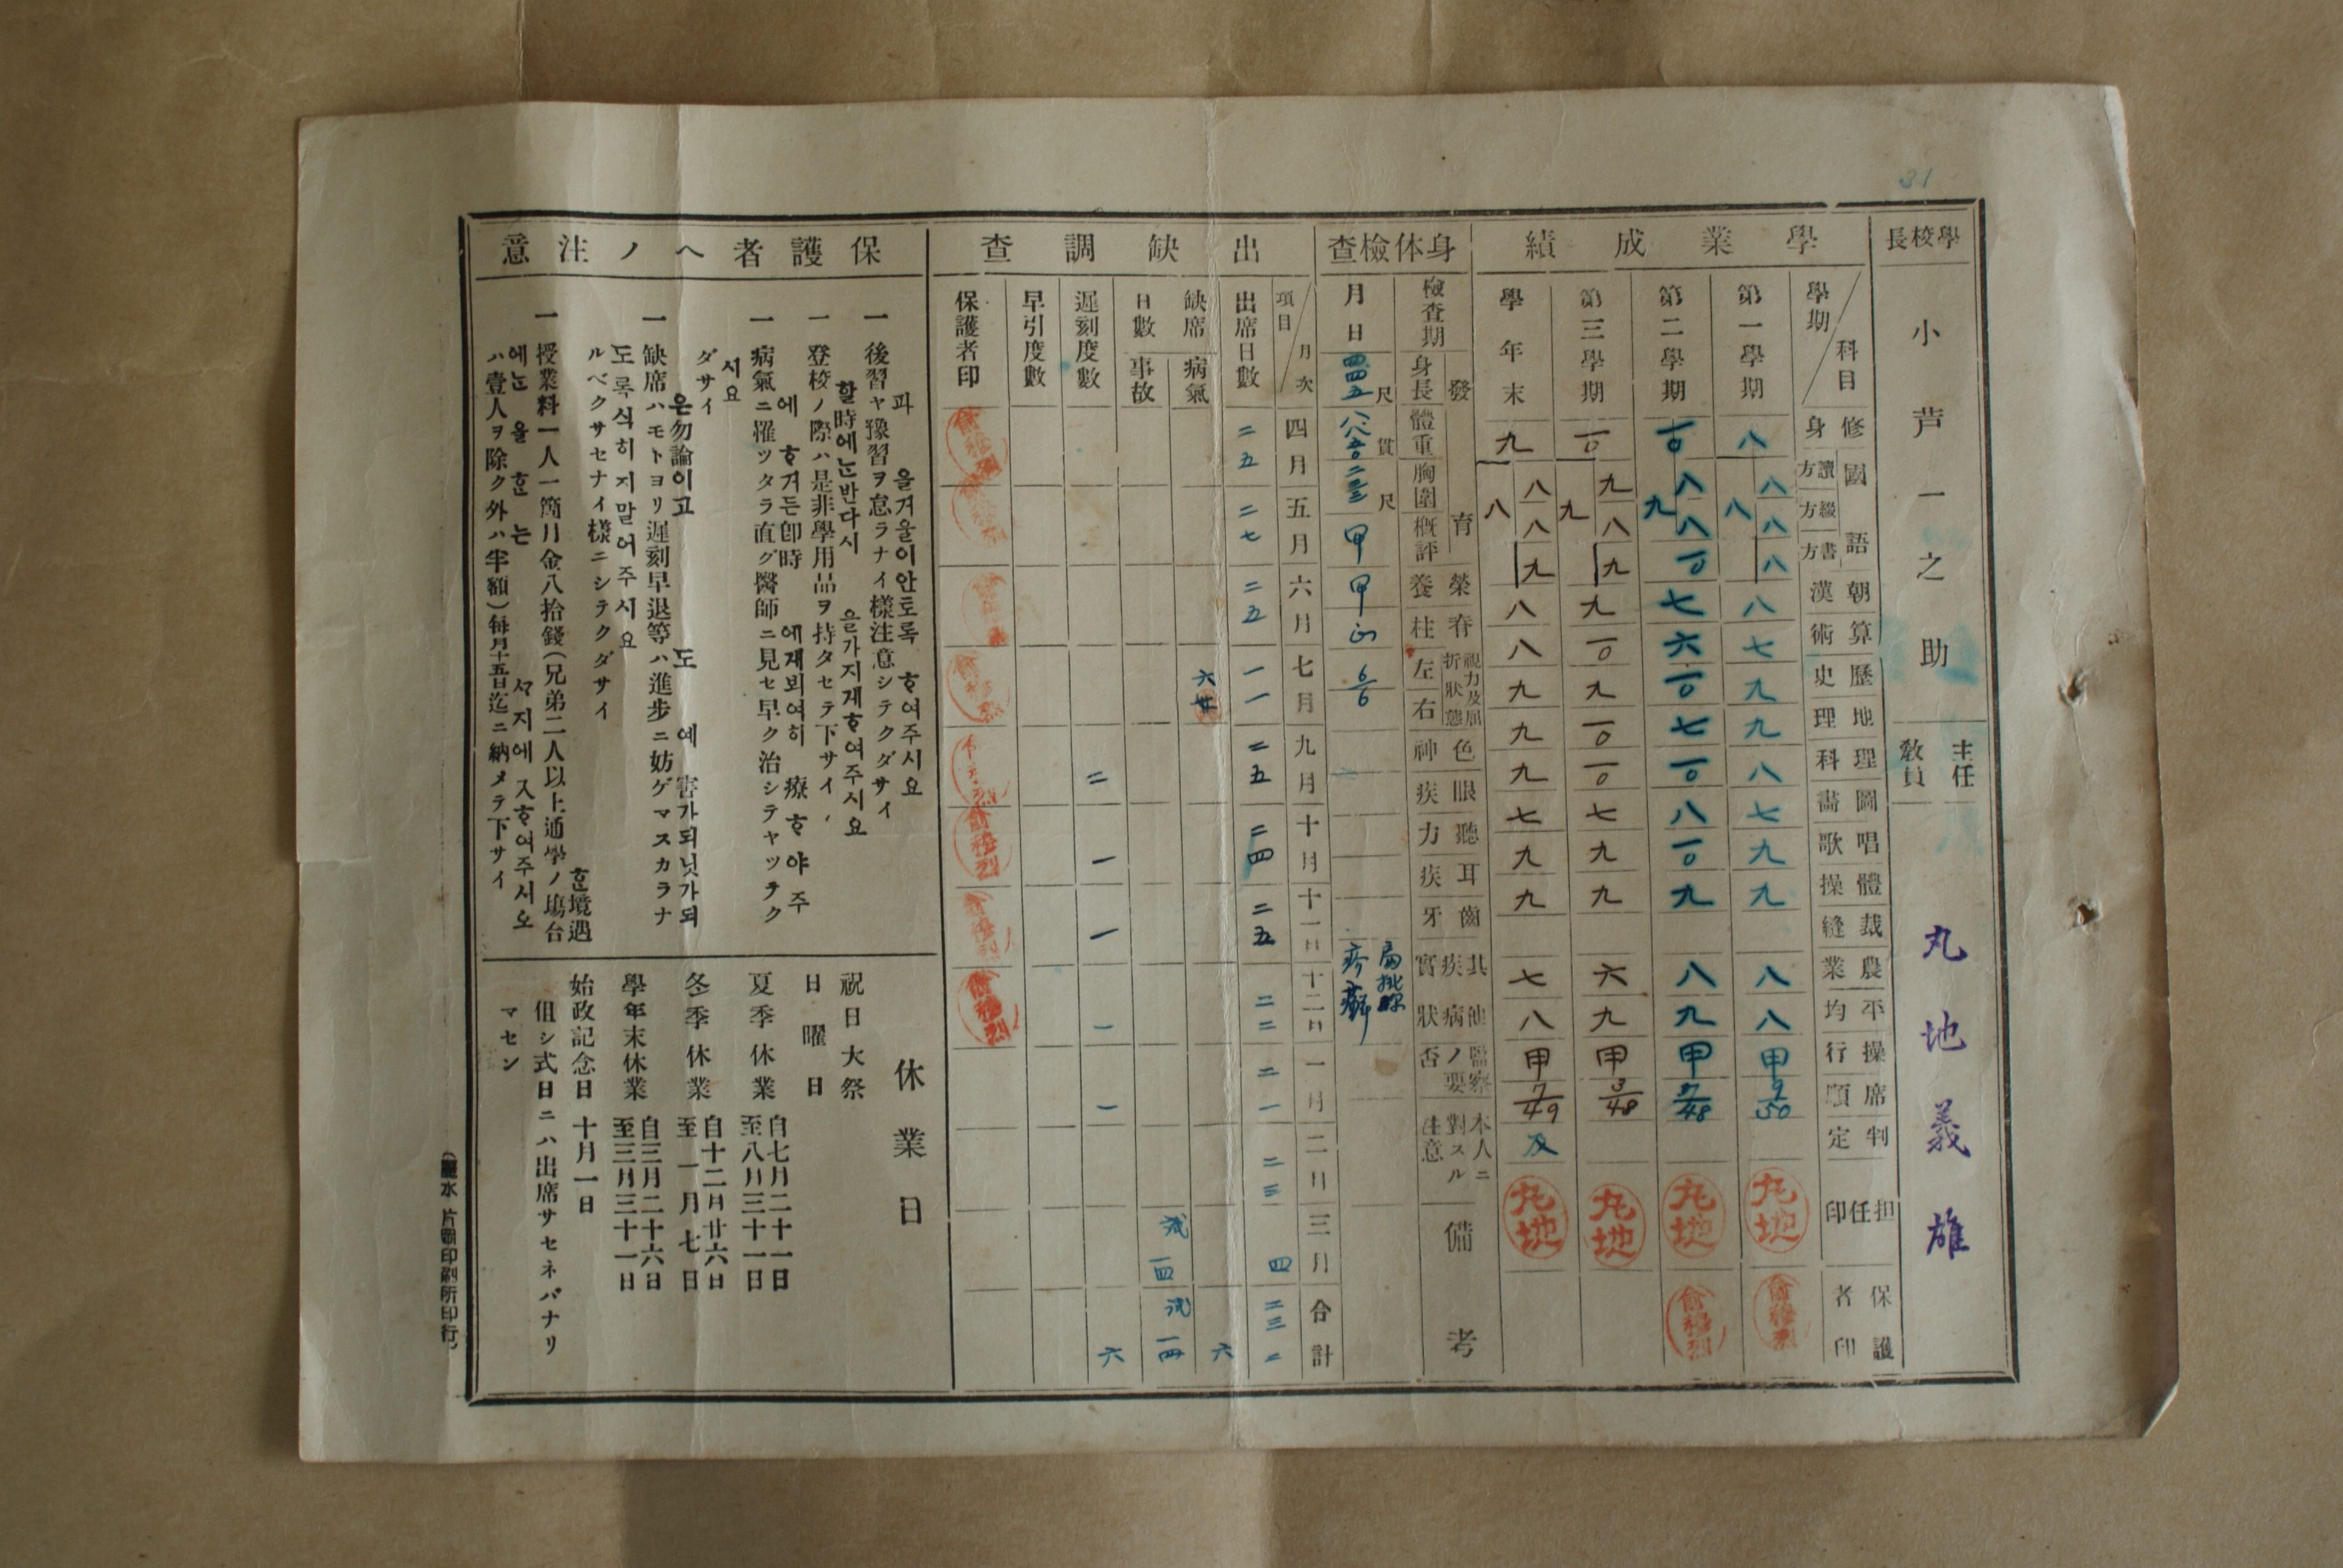 31
學校長
小芦一之助
主任教員
丸地義雄
學業成績
學期／科目 修身 國語 讀方 綴方 書方 朝漢 算術 歷史 地理 理科 圖畵 唱歌 體操 裁縫 農業 平均 操行 席順 判定 担任印 保護者印
第一學期 八 八 八 八 八 八 七 九 九 八 七 九 九 八 八 甲 9/50 丸地
第二學期 一〇 九 八 八 一〇 七 六 一〇 七 一〇 八 一〇 九 八 九 甲 7/48 丸地
第三學期 一〇 九 九 八 九 九 一〇 九 一〇 一〇 七 九 九 六 九 甲 3/48 丸地
學年末 九 八 八 八 九 八 八 九 九 九 七 九 九 七 八 甲 7/49 及 丸地
身体檢查
檢查期 發育 身長 體重 胸圍 概評 榮養 脊柱 視力及屈折狀態 左 右 色神 眼疾 聽力 耳疾 齒牙 其他疾病實狀 監察ノ要否 本人ニ對スル注意 備考
月日 尺 貫 尺 甲 甲 6/6
出缺調查
項目／月次 四月 五月 六月 七月 九月 十月 十一月 十二月 一月 二月 三月 合計
出席日數 二五 二七 二五 一一 二五 二四 二五 二二 二一 二三 四 二三二
缺席日數 病氣 六 六
事故 一四 一四
遲刻度數 二 一 一 一 一 六
早引度數
保護者印
保護者ヘノ注意
一 後習ヤ豫習ヲ怠ラナイ樣注意シテクダサイ
과 을거울이안토록 ᄒᆞ여주시요
一 登校ノ際ハ是非學用品ヲ持タセテ下サイ
할時에는반다시 을가지게ᄒᆞ여주시요
一 病氣ニ罹ツタラ直グ醫師ニ見セ早ク治シテヤツテク
에 ᄒᆞ거든卽時 에게뵈여히 療ᄒᆞ야주
ダサイ
시요
一 缺席ハモトヨリ遲刻早退等ハ進步ニ妨ゲマスカラナ
은勿論이고 도 에 害가되닛가되
ルベクサセナイ樣ニシテクダサイ
도록식히지말어주시요
一 授業料一人一箇月金八拾錢(兄弟二人以上通學ノ塲合
ᄒᆞᆫ境遇
ハ壹人ヲ除ク外ハ半額)每月十五日迄ニ納メテ下サイ
에는 을 ᄒᆞᆫ 는 ᄭᅡ지에 入ᄒᆞ여주시오
休業日
祝日大祭
日曜日
夏季休業 自七月二十一日 至八月三十一日
冬季休業 自十二月廿六日 至一月七日
學年末休業 自三月二十六日 至三月三十一日
始政記念日 十月一日
但シ式日ニハ出席サセネバナリ
マセン
(麗水 片岡印刷所印行)